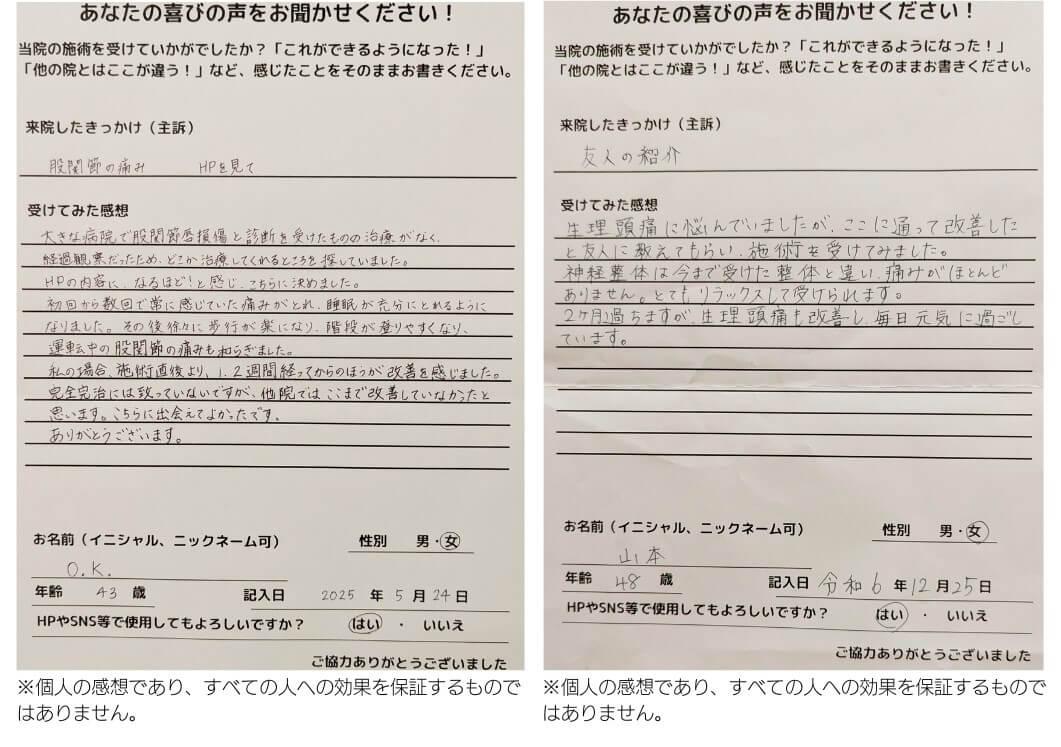 あなたの喜びの声をお聞かせください！
当院の施術を受けていかがでしたか？「これができるようになった！」
「他の院とはここが違う！」など、感じたことをそのままお書きください。
来院したきっかけ（主訴）
股関節の痛み　　HPを見て
受けてみた感想
大きな病院で股関節唇損傷と診断を受けたものの治療がなく、
経過観察だったため、どこか治療してくれるところを探していました。
HPの内容に、なるほど！と感じ、こちらに決めました。
初回から数回で常に感じていた痛みがとれ、睡眠が充分にとれるように
なりました。その後徐々に歩行が楽になり、階段が登りやすくなり、
運転中の股関節の痛みも和らぎました。
私の場合、施術直後より、1、2週間経ってからのほうが改善を感じました。
完全完治には致っていないですが、他院ではここまで改善していなかったと
思います。こちらに出会えてよかったです。
ありがとうございます。
お名前（イニシャル、ニックネーム可）　性別　男・女
O.K.
年齢　43　歳　記入日　2025　年　5　月　24　日
HPやSNS等で使用してもよろしいですか？　はい　・　いいえ
ご協力ありがとうございました
※個人の感想であり、すべての人への効果を保証するもので
はありません。
あなたの喜びの声をお聞かせください！
当院の施術を受けていかがでしたか？「これができるようになった！」
「他の院とはここが違う！」など、感じたことをそのままお書きください。
来院したきっかけ（主訴）
友人の紹介
受けてみた感想
生理頭痛に悩んでいましたが、ここに通って改善した
と友人に教えてもらい、施術を受けてみました。
神経整体は今まで受けた整体と違い、痛みがほとんど
ありません。とてもリラックスして受けられます。
2ヶ月過ちますが、生理頭痛も改善し、毎日元気に過ごし
ています。
お名前（イニシャル、ニックネーム可）　性別　男・女
山本
年齢　48　歳　記入日　令和6　年　12　月　25　日
HPやSNS等で使用してもよろしいですか？　はい　・　いいえ
ご協力ありがとうございました
※個人の感想であり、すべての人への効果を保証するもので
はありません。